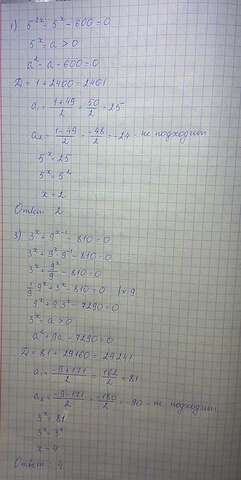 1) 5^2x - 5^x - 600 = 0
5^x = a > 0
a² - a - 600 = 0
D = 1 + 2400 = 2401
a₁ = (1+49)/2 = 50/2 = 25
a₂ = (1-49)/2 = -48/2 = -24 - не подходит
5^x = 25
5^x = 5²
x = 2
Ответ: 2
3) 3^x + 9^x-1 - 810 = 0
3^x + 9^x · 9^-1 - 810 = 0
3^x + 9^x/9 - 810 = 0
1/9 · 9^x + 3^x - 810 = 0 | × 9
9^x + 9·3^x - 7290 = 0
3^x = a > 0
a² + 9a - 7290 = 0
D = 81 + 29160 = 29241
a₁ = (-9+171)/2 = 162/2 = 81
a₂ = (-9-171)/2 = -180/2 = -90 - не подходит
3^x = 81
3^x = 3⁴
x = 4
Ответ: 4